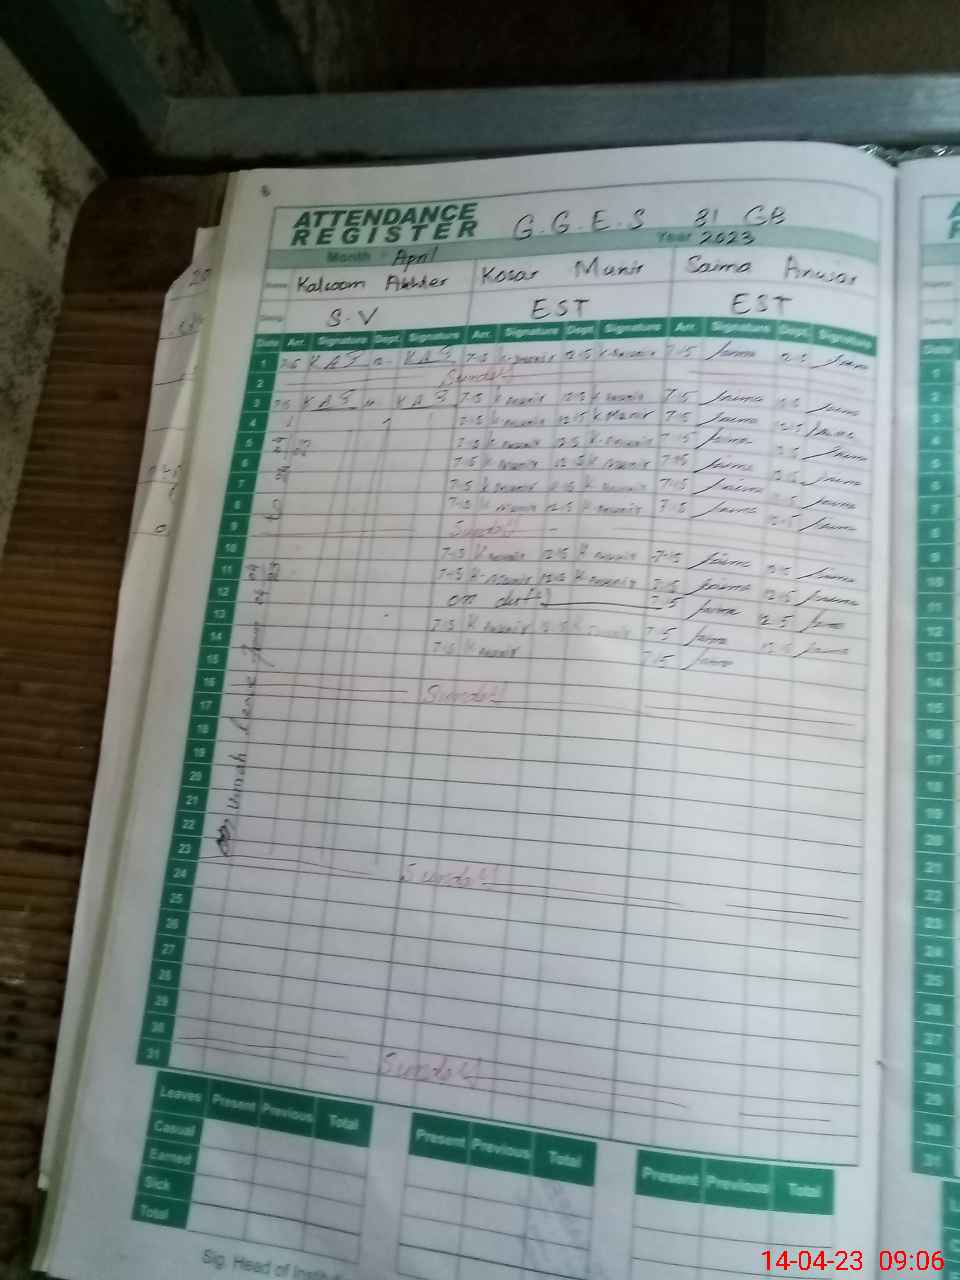 8
ATTENDANCE REGISTER G.G.E.S 81 GB
Month April Year 2023
Name Kalsoom Akhter Kosar Munir Saima Anwar
Desig S.V EST EST
Date Arr. Signature Dept. Signature Arr. Signature Dept. Signature Arr. Signature Dept. Signature
1 7-15 K A S 12- K A S 7-15 K.munir 12-15 K.munir 7-15 Saima 12-5 Saima
2 Sunday
3 7-15 K A S K A S 7-15 K munir 12-15 K munir 7-15 Saima 12-15 Saima
4 7-15 K munir 12-15 K.Munir 7-15 Saima 12-15 Saima
5 7-15 K munir 12-5 K.munir 7-15 Saima 12-5 Saima
6 7-15 K munir 12-15 K munir 7-15 Saima 12-15 Saima
7 7-15 K munir 12-15 K munir 7-15 Saima 12-15 Saima
8 7-15 K munir 12-15 K munir 7-15 Saima 12-15 Saima
9 Sunday
10 7-15 K munir 12-15 K munir 7-15 Saima 12-15 Saima
11 7-15 K-munir 12-15 K.munir 7-15 Saima 12-15 Saima
12 on duty 7-15 Saima 12-5 Saima
13 7-15 K munir 12-15 K munir 7-15 Saima 12-15 Saima
14 7-15 K munir 7-15 Saima
15
16 Sunday
17
18
19
20
21
22
23 Sunday
24
25
26
27
28
29
30 Sunday
31
on Umrah Leave from
to
Leaves Present Previous Total Present Previous Total Present Previous Total
Casual
Earned
Sick
Total
Sig. Head of Instit
14-04-23 09:06